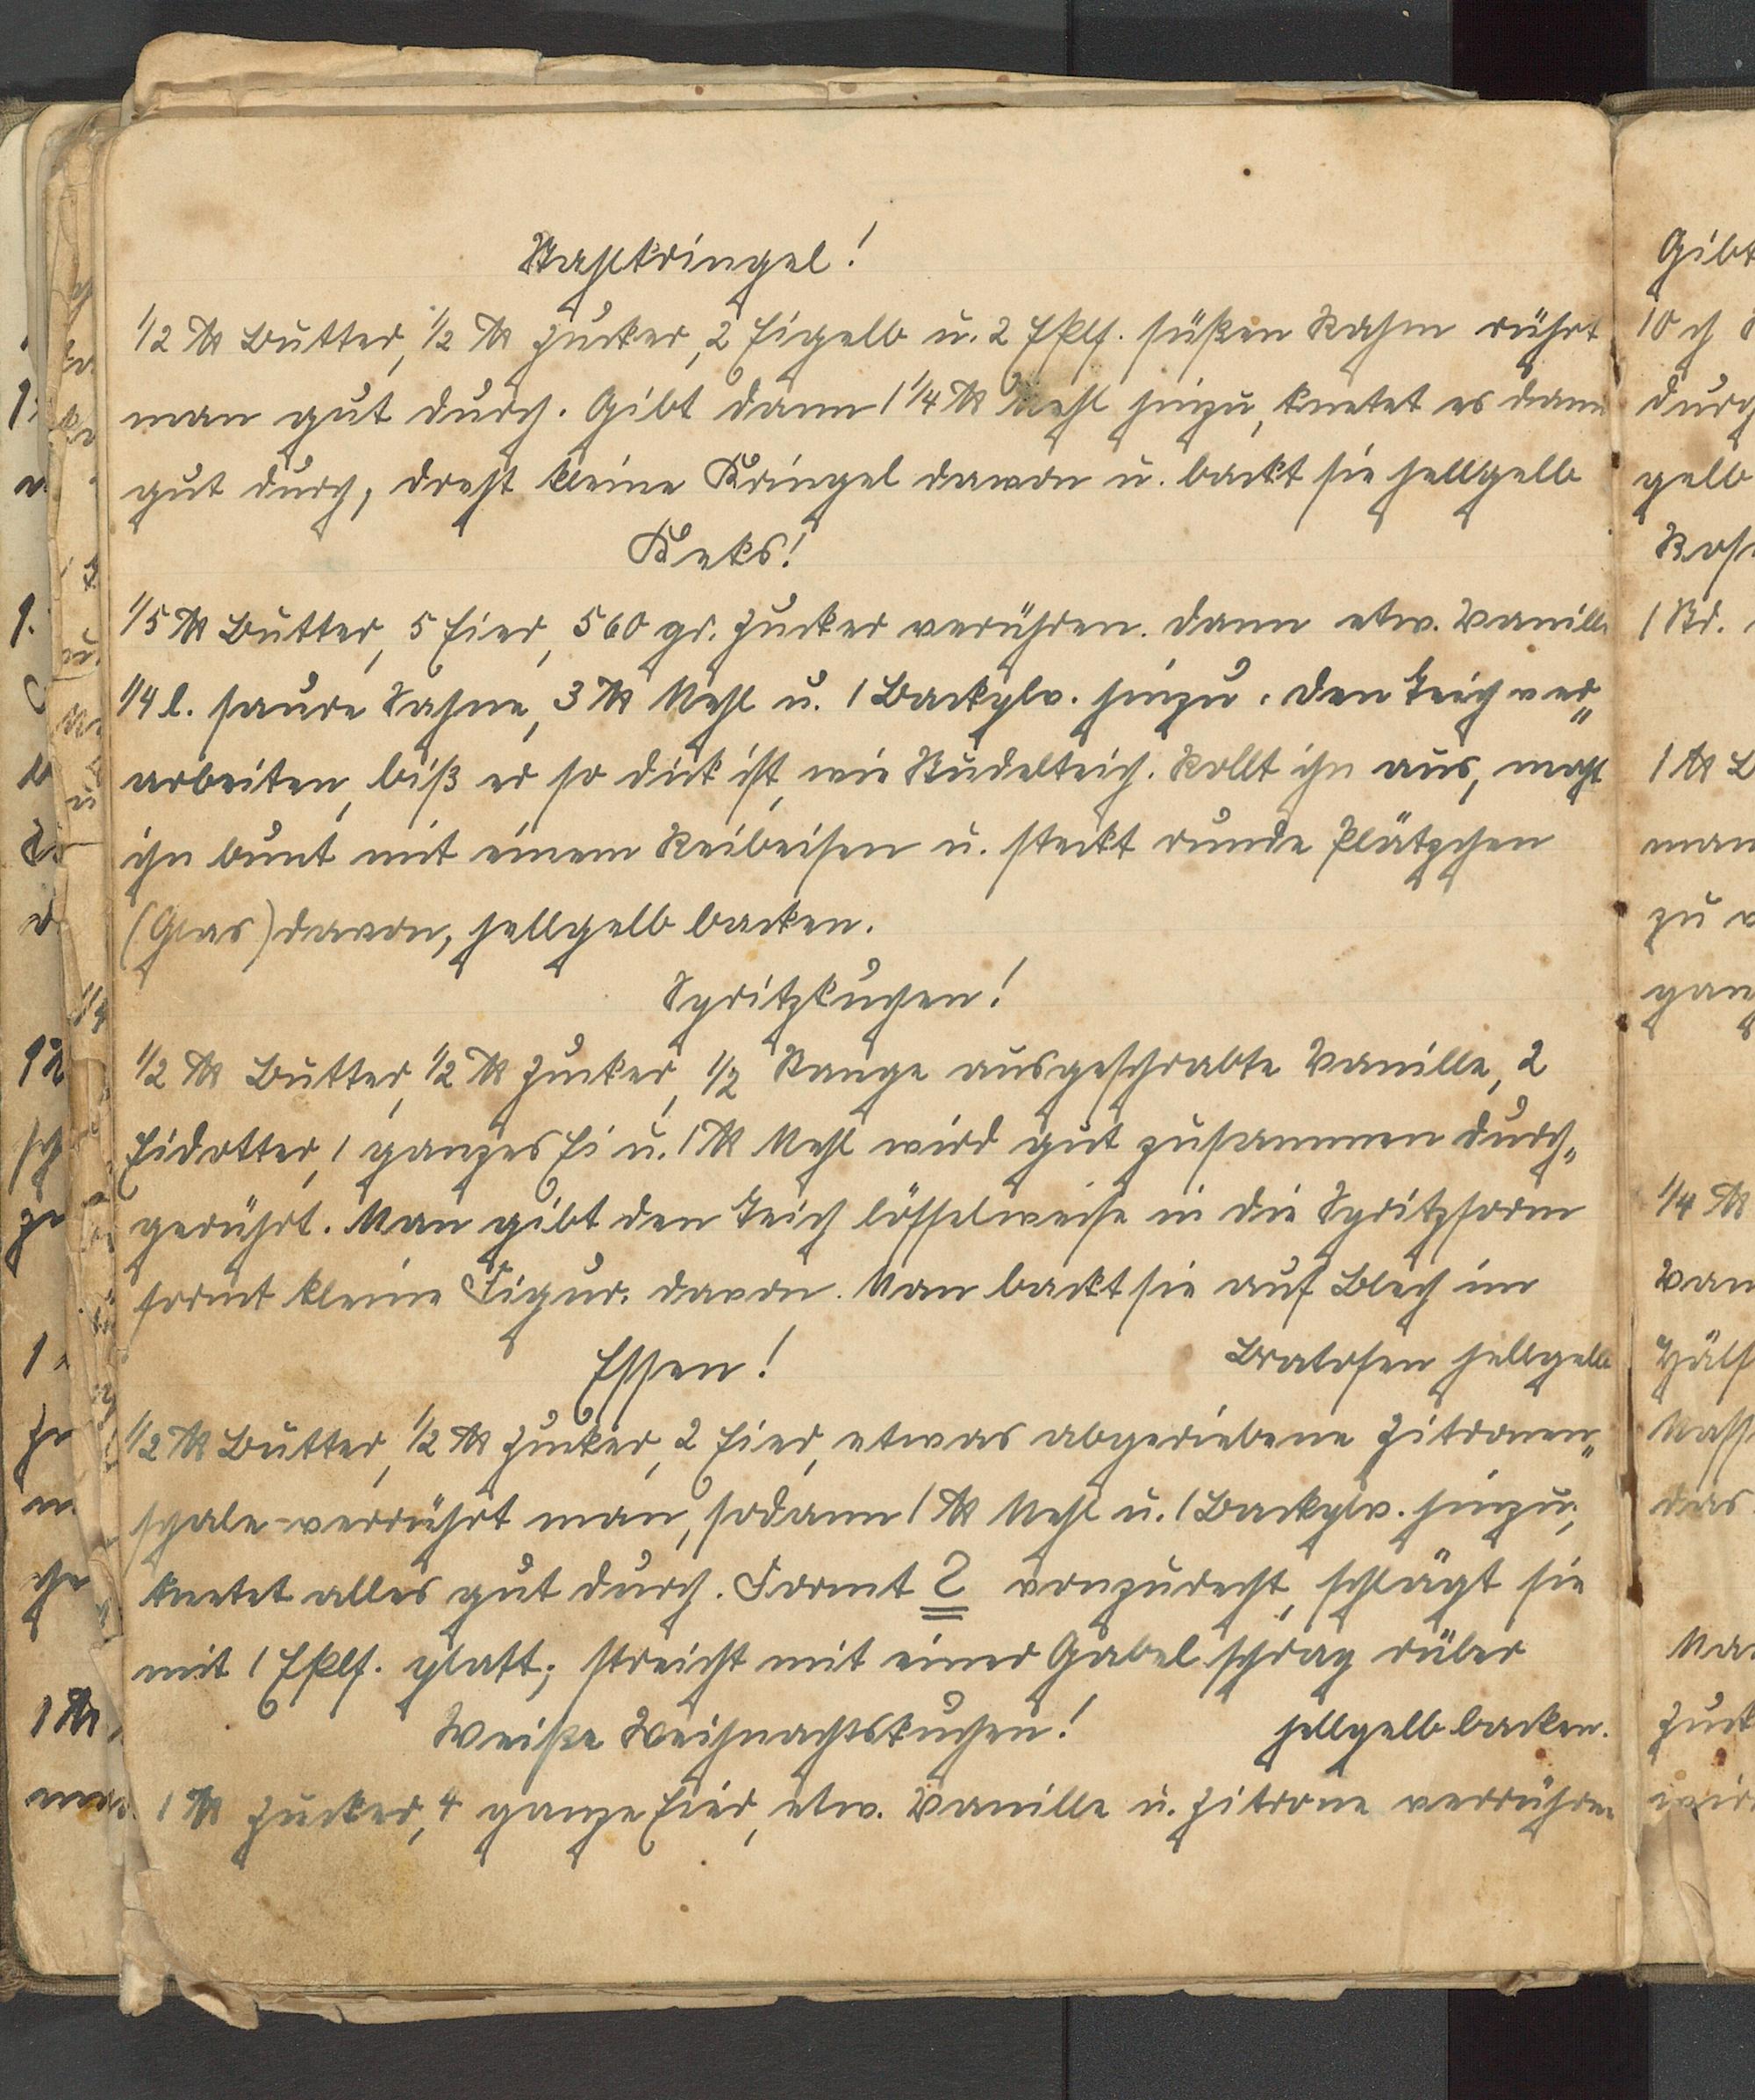 Stahlkringel!
1/2 ℔ Butter, 1/2 ℔ Zucker, 2 Eigelb u. 2 Eßlf. süßen Rahm rührt
man gut durch. Gibt dann 1 1/4 ℔ Mehl hinzu, knetet es dann
gut durch, dreht kleine Kringel davon u. backt sie hellgelb
Keks!
1/5 ℔ Butter, 5 Eier, 560 gr. Zucker verühren. dann etw. Vanille
1/4 l. saure Sahne, 3 ℔ Mehl u. 1 Backplv. hinzu. den Teich ver„
arbeiten, biß er so dick ist, wie Nudelteich. Rollt ihn aus, macht
ihn bunt mit einem Reibeisen u. steckt runde Plätzchen
(Glas) davon, hellgelb backen.
Spritzkuchen!
1/2 ℔ Butter, 1/2 ℔ Zucker, 1/2 Stange ausgeschrabte Vanille, 2
Eidotter, 1 ganzes Ei u. 1 ℔ Mehl wird gut zusammen durch„
gerührt. Man gibt den Teich löffelweise in die Spritzform
formt kleine Figur. davon. Man backt sie auf Blech im
Bratofen hellgelb
Essen!
1/2 ℔ Butter, 1/2 ℔ Zucker, 2 Eier, etwas abgeriebene Zitronen„
schale verrührt man, sodann 1 ℔ Mehl u. 1 Backplv. hinzu,
knetet alles gut durch. Formt S vonzurecht, schlägt sie
mit 1 Eßlf. platt; streicht mit einer Gabel schrag rüber
hellgelb backen.
Weiße Weihnachtskuchen!
1 ℔ Zucker, 4 ganze Eier, etw. Vanille u. Zitrone verrühren
Gibt
10
durch
gelb
1 ℔
man
zu
ganz
1/4 ℔
Van
Hälf
Masse
das
Zuck